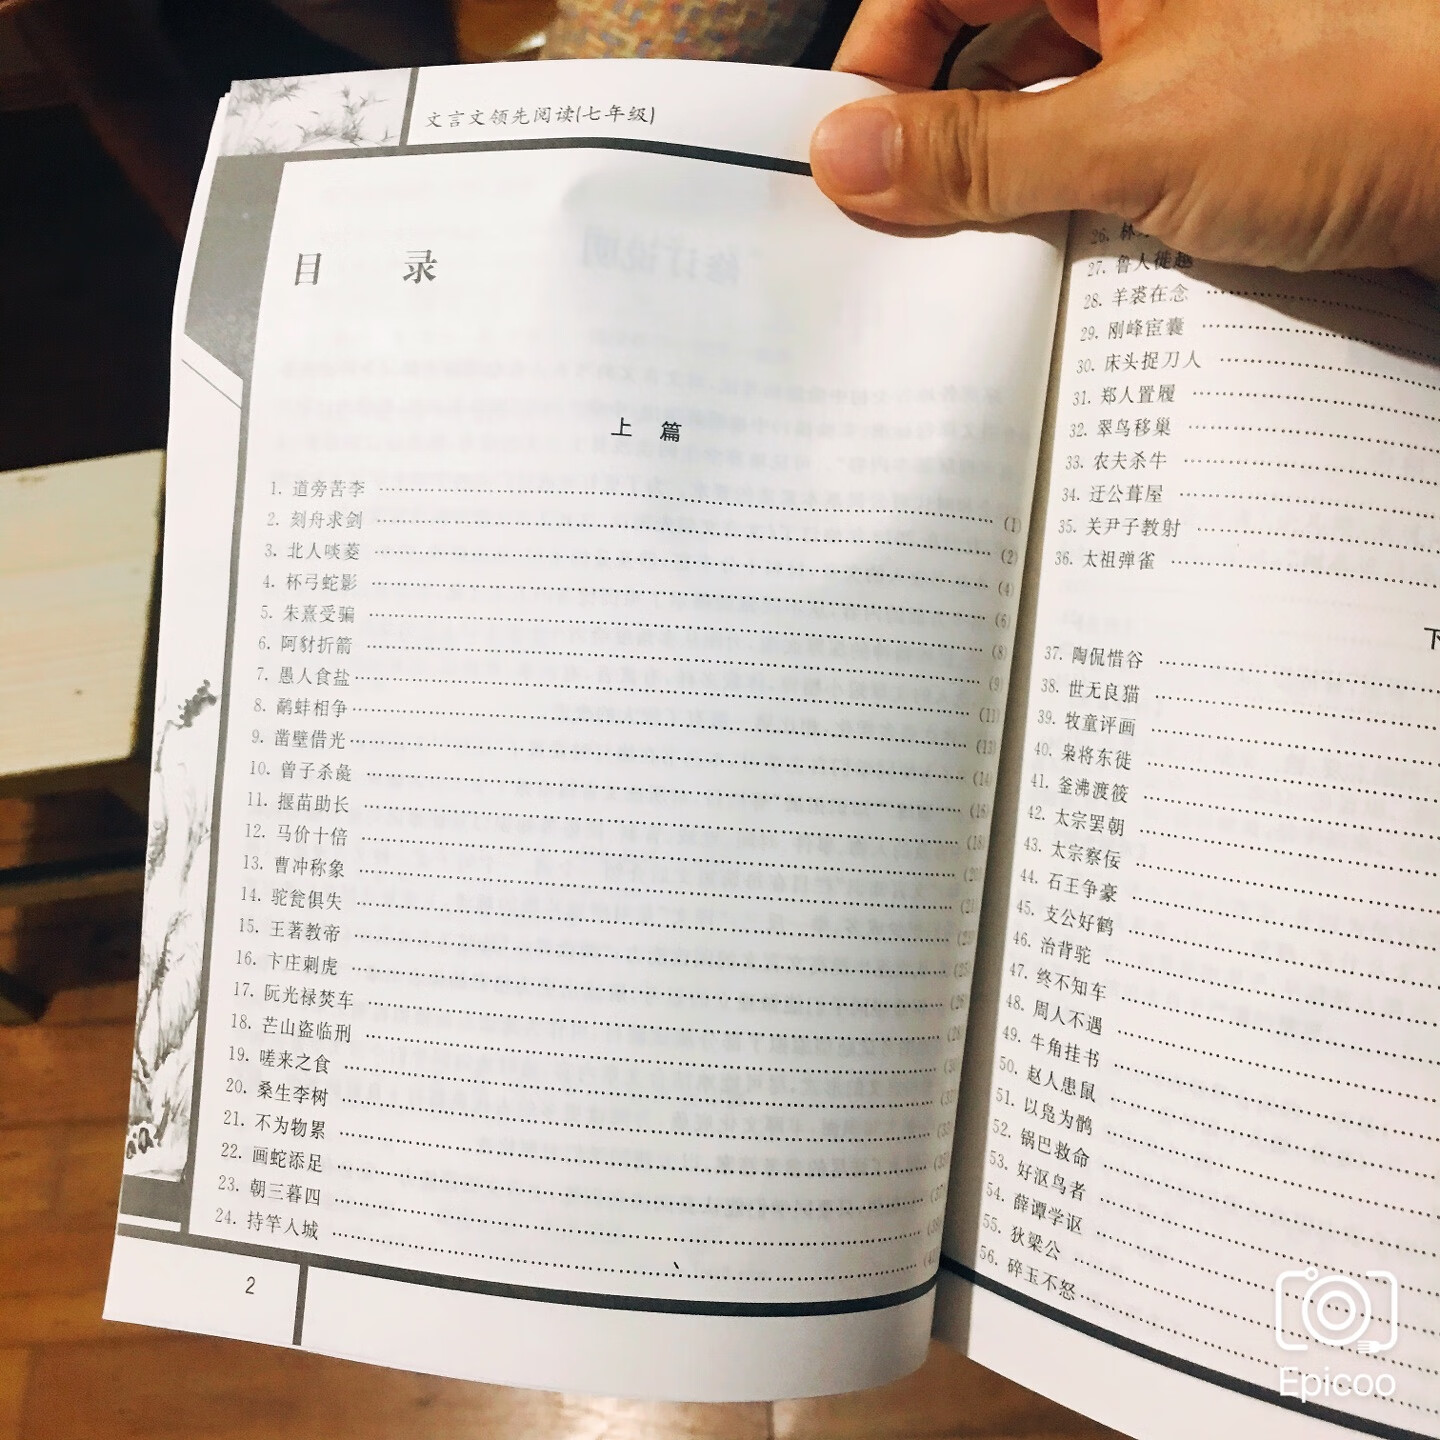 文言文领先阅读(七年级)
目 录
上 篇
1. 道旁苦李 (1)
2. 刻舟求剑 (2)
3. 北人啖菱 (4)
4. 杯弓蛇影 (6)
5. 朱熹受骗 (8)
6. 阿豺折箭 (9)
7. 愚人食盐 (11)
8. 鹬蚌相争 (13)
9. 凿壁借光 (14)
10. 曾子杀彘 (16)
11. 揠苗助长 (18)
12. 马价十倍 (20)
13. 曹冲称象 (21)
14. 驼瓮俱失 (23)
15. 王著教帝 (25)
16. 卞庄刺虎 (26)
17. 阮光禄焚车 (28)
18. 芒山盗临刑
19. 嗟来之食 (32)
20. 桑生李树 (33)
21. 不为物累 (35)
22. 画蛇添足 (37)
23. 朝三暮四 (39)
24. 持竿入城
2
26.
27. 鲁人徙越
28. 羊裘在念
29. 刚峰宦囊
30. 床头捉刀人
31. 郑人置履
32. 翠鸟移巢
33. 农夫杀牛
34. 迂公葺屋
35. 关尹子教射
36. 太祖弹雀
下
37. 陶侃惜谷
38. 世无良猫
39. 牧童评画
40. 枭将东徙
41. 釜沸渡筱
42. 太宗罢朝
43. 太宗察佞
44. 石王争豪
45. 支公好鹤
46. 治背驼
47. 终不知车
48. 周人不遇
49. 牛角挂书
50. 赵人患鼠
51. 以凫为鹘
52. 锅巴救命
53. 好沤鸟者
54. 薛谭学讴
55. 狄梁公
56. 碎玉不怒
Epicoo